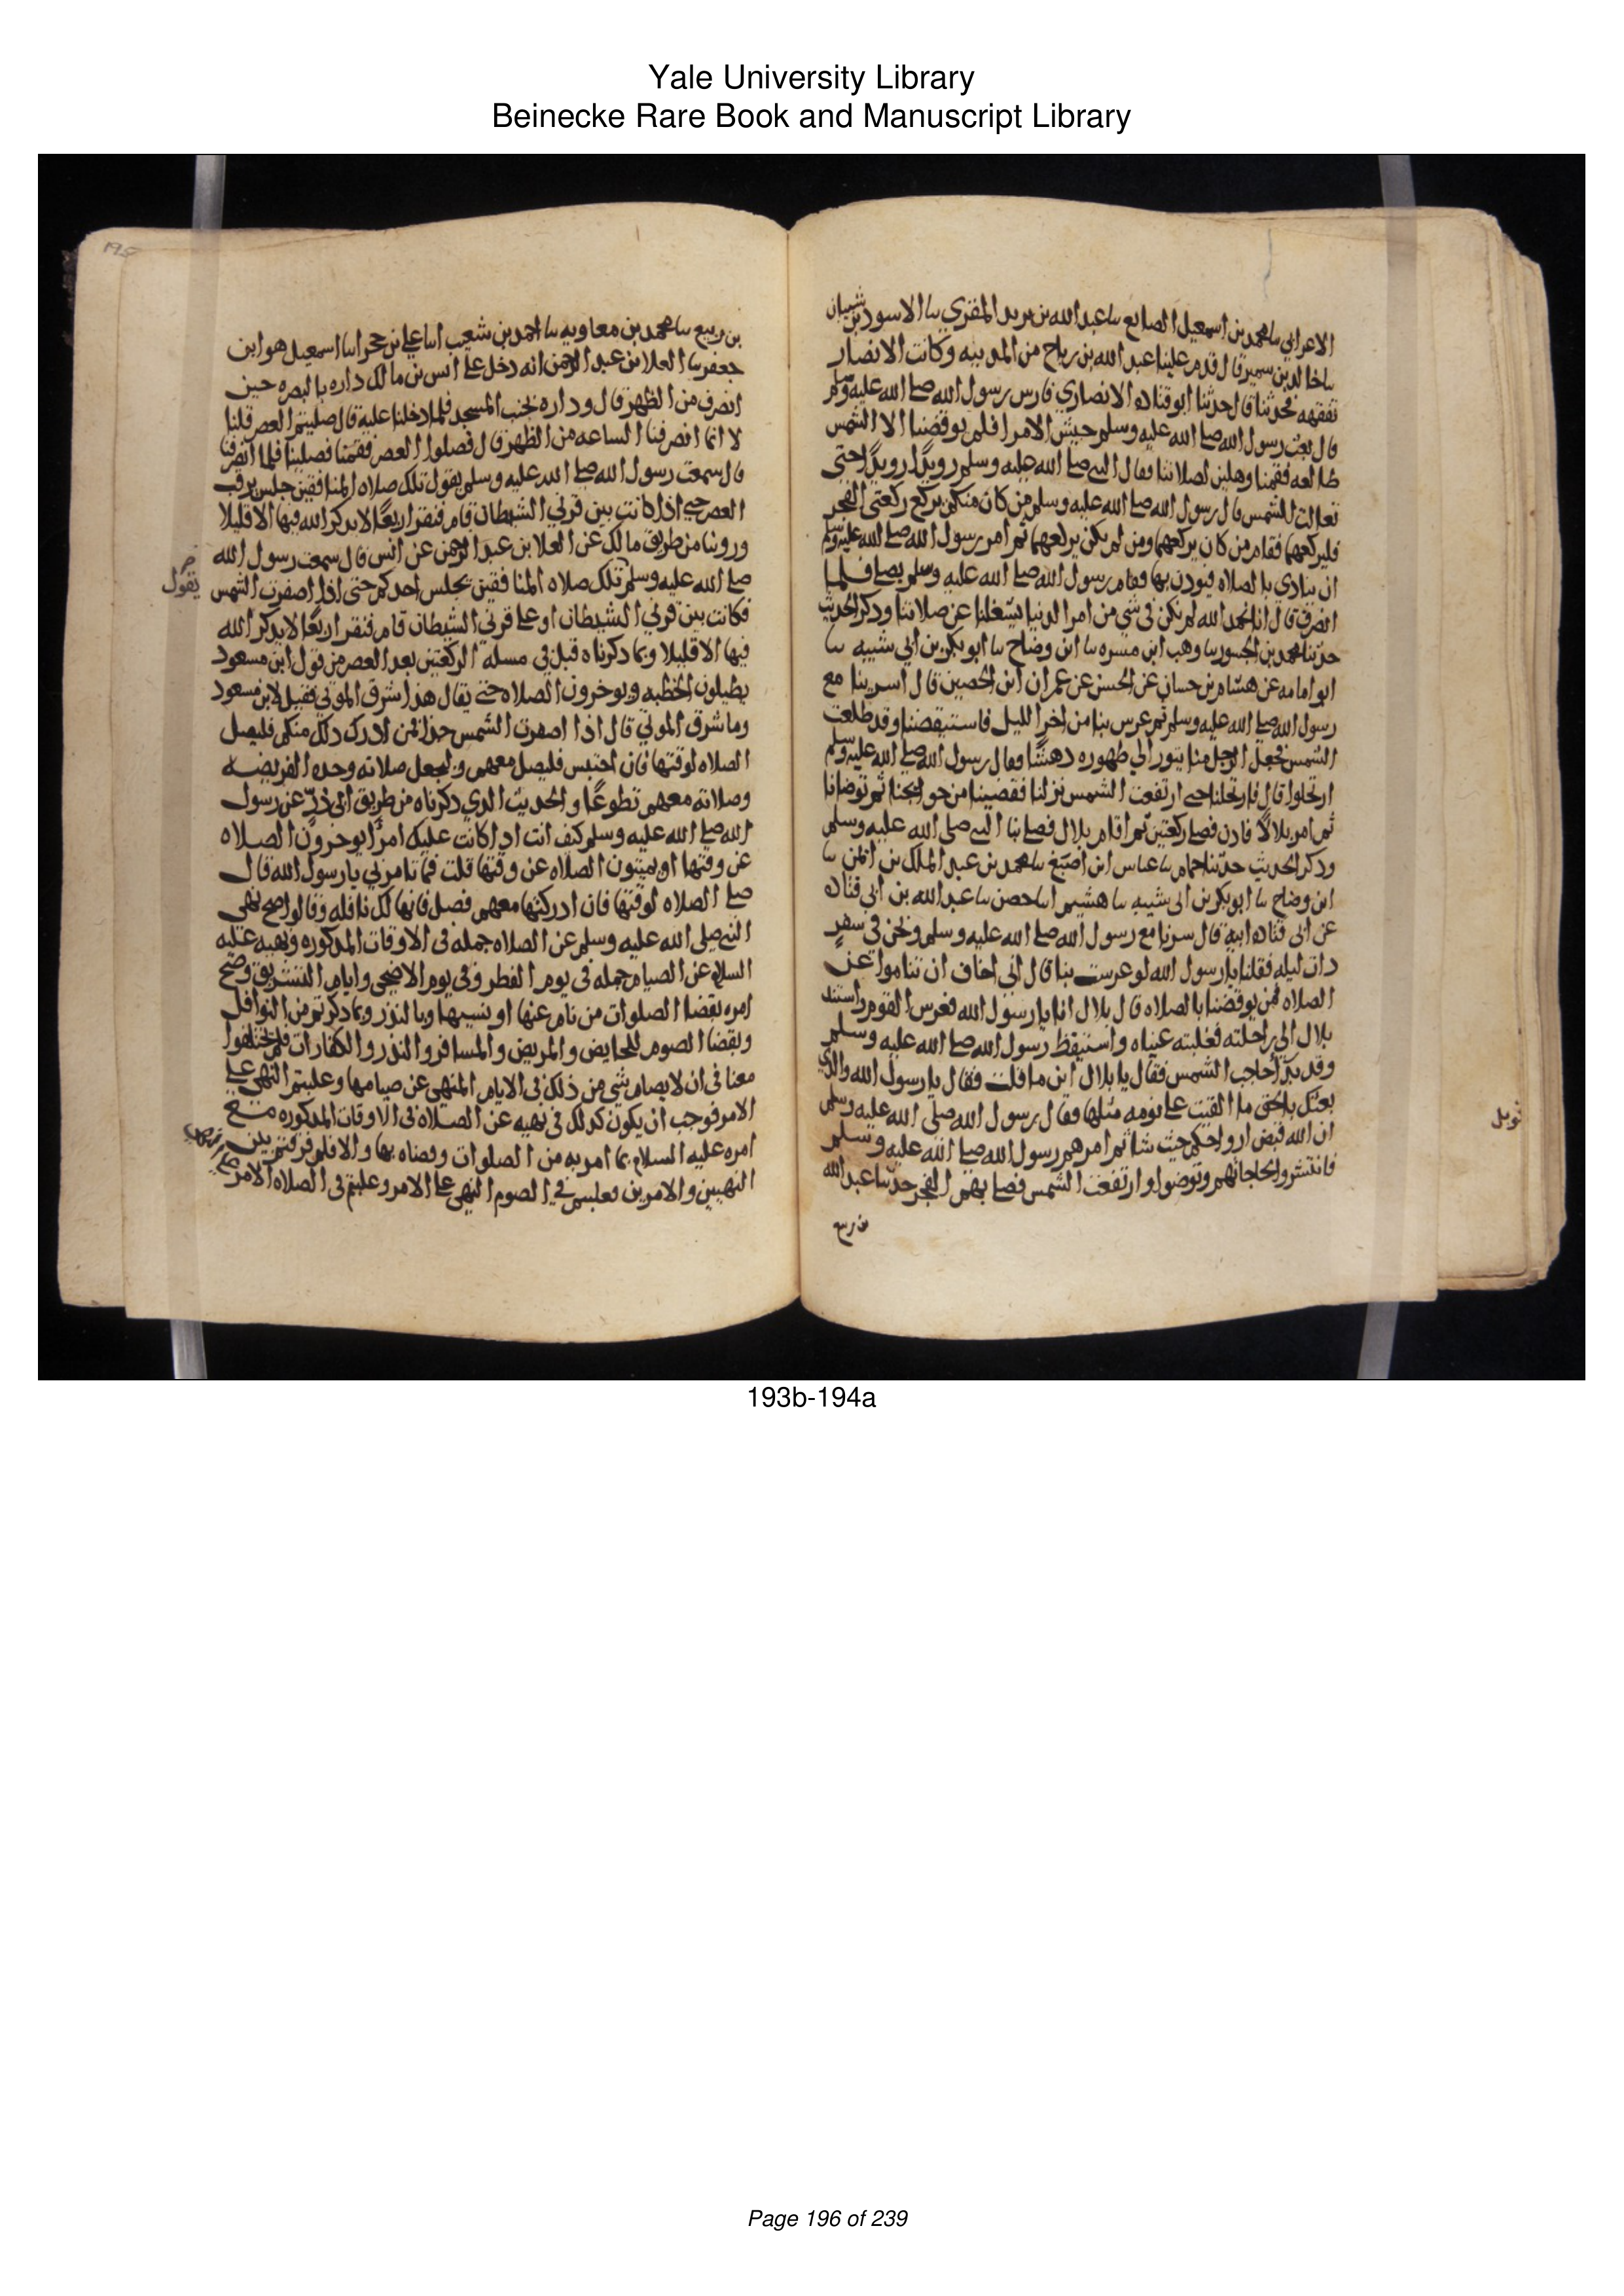 Yale University Library
Beinecke Rare Book and Manuscript Library
الاعرابي سا محمد بن اسمعيل الصايغ سا عبد الله بن يزيد المقري سا الاسود بن شيبان
سا خالد بن سمير قال قدم علينا عبد الله بن رباح من المدينه وكانت الانصار
تفقهه فحدثنا قال حدثنا ابو قتاده الانصاري فارس رسول الله صلى الله عليه وسلم
قال بعث رسول الله صلى الله عليه وسلم جيش الامرا فلم يوقضنا الا الشمس
طالعه فقمنا وهلين لصلاتنا فقال النبي صلى الله عليه وسلم رويدًا رويدًا حتى
تعالت الشمس قال رسول الله صلى الله عليه وسلم من كان منكم يركع ركعتي الفجر
فليركعهما فقام من كان يركعهما ومن لم يكن يركعهما ثم امر رسول الله صلى الله عليه وسلم
ان ينادى بالصلاه فنودي بها فقام رسول الله صلى الله عليه وسلم يصلي فلما
انصرف قال انا نحمد الله لم نكن في شي من امر الدنيا يشغلنا عن صلاتنا وذكر الحديث
حدثنا محمد بن الجسور سا وهب ابن مسره سا ابن وضاح سا ابو بكر بن ابي شيبه سا
ابو اسامه عن هشام بن حسان عن الحسن عن عمران ابن الحصين قال اسرينا مع
رسول الله صلى الله عليه وسلم ثم عرس بنا من اخر الليل فاستيقضنا وقد طلعت
الشمس فجعل الرجل منا يثور الى طهوره دهشًا فقال رسول الله صلى الله عليه وسلم
ارتحلوا قال فارتحلنا حتى ارتفعت الشمس نزلنا فقضينا من حوايجنا ثم توضانا
ثم امر بلالًا فاذن فصلى ركعتين ثم اقام بلال فصلى بنا النبي صلى الله عليه وسلم
وذكر الحديث حدثنا حمام سا عباس ابن اصبغ سا محمد بن عبد الملك بن ايمن سا
ابن وضاح سا ابو بكر بن ابي شيبه سا هشيم انا حصين سا عبد الله بن ابي قتاده
عن ابي قتاده ابيه قال سرنا مع رسول الله صلى الله عليه وسلم ونحن في سفر
ذات ليله فقلنا يا رسول الله لو عرست بنا قال اني اخاف ان تناموا عن
الصلاه فمن يوقضنا بالصلاه قال بلال انا يا رسول الله فعرس القوم واستند
بلال الى راحلته فغلبته عيناه واستيقظ رسول الله صلى الله عليه وسلم
وقد بدا حاجب الشمس فقال يا بلال اين ما قلت فقال يا رسول الله والذي
بعثك بالحق ما القيت علي نومه مثلها فقال رسول الله صلى الله عليه وسلم
ان الله قبض ارواحكم حيث شا ثم امرهم رسول الله صلى الله عليه وسلم
فانتشروا لحاجاتهم وتوضوا وارتفعت الشمس فصلى بهم الفجر حدثنا عبد الله
بن ربيع
بن ربيع سا محمد بن معاويه سا احمد بن شعيب انا علي بن حجر انا اسمعيل هو ابن
جعفر سا العلا بن عبد الرحمن انه دخل على انس بن مالك داره بالبصره حين
انصرف من الظهر قال وداره بجنب المسجد فلما دخلنا عليه قال صليتم العصر قلنا
لا انما انصرفنا الساعه من الظهر قال فصلوا العصر فقمنا فصلينا فلما انصرفنا
قال سمعت رسول الله صلى الله عليه وسلم يقول تلك صلاه المنافقين جلس يرقب
العصر حتى اذا كانت بين قرني الشيطان قام فنقر اربعًا لا يذكر الله فيها الا قليلا
وروينا من طريق مالك عن العلا بن عبد الرحمن عن انس قال سمعت رسول الله
يقول
صلى الله عليه وسلم تلك صلاه المنافقين يجلس احدكم حتى اذا اصفرت الشمس
فكانت بين قرني الشيطان او على قرني الشيطان قام فنقر اربعًا لا يذكر الله
فيها الا قليلا وبما ذكرناه قبل في مسله الركعتين بعد العصر من قول ابن مسعود
يطيلون الخطبه ويوخرون الصلاه حتى يقال هذا شرق الموتي فقيل لابن مسعود
وما شرق الموتي قال اذا اصفرت الشمس جدا فمن ادرك ذلك منكم فليصل
الصلاه لوقتها فان احتبس فليصل معهم وليجعل صلاته وحده الفريضه
وصلاته معهم تطوعًا والحديث الذي ذكرناه من طريق ابي ذرٍ عن رسول
الله صلى الله عليه وسلم كيف انت اذا كانت عليك امرا يوخرون الصلاه
عن وقتها او يميتون الصلاه عن وقتها قلت فما تامرني يا رسول الله قال
صل الصلاه لوقتها فان ادركتها معهم فصل فانها لك نافله وقالوا صح نهي
النبي صلى الله عليه وسلم عن الصلاه جمله في الاوقات المذكوره ونهيه عليه
السلام عن الصيام جمله في يوم الفطر وفي يوم الاضحى وايام التشريق وصح
امره بقضا الصلوات من نام عنها او نسيها وبالنذر وبما ذكرتم من النوافل
وبقضا الصوم للحايض والمريض والمسافر والنذر والكفارات فلم تختلفوا
معنا في ان لا يصام شي من ذلك في الايام المنهى عن صيامها وغلبتم النهي على
الامر فوجب ان يكون كذلك في نهيه عن الصلاه في الاوقات المذكوره مع
امره عليه السلام بما امر به من الصلوات وقضاه بها والا فلم فرقتم بين
النهيين والامرين فغلبتم في الصوم النهي على الامر وغلبتم في الصلاه الامر
193b-194a
Page 196 of 239